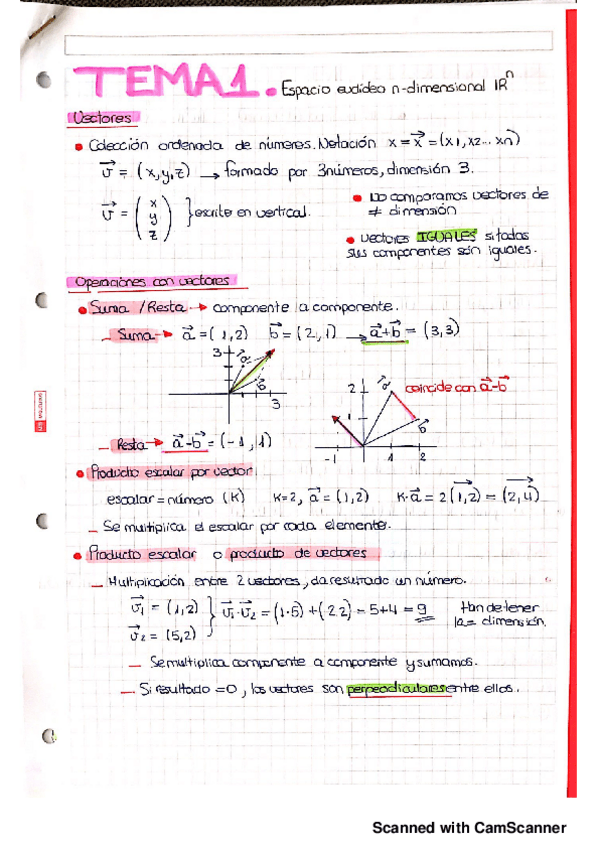 TEMA 1. Espacio euclídeo n-dimensional ℝⁿ
Vectores
• Colección ordenada de números. Notación x = x⃗ = (x1, x2... xn)
v⃗ = (x, y, z) → formado por 3 números, dimensión 3.
v⃗ = (x y z) } escrito en vertical.
• No comparamos vectores de
≠ dimensión
• Vectores IGUALES si todas
sus componentes son iguales.
Operaciones con vectores
• Suma / Resta → componente a componente.
– Suma → a⃗ = (1,2) b⃗ = (2,1) → a⃗+b⃗ = (3,3)
3 a⃗ b⃗ 3
2 a⃗ coincide con a⃗-b⃗
1 b⃗
-1 1 2
– Resta → a⃗-b⃗ = (-1,1)
• Producto escalar por vector
escalar = número (K) K=2, a⃗ = (1,2) K·a⃗ = 2(1,2) = (2,4)
– Se multiplica el escalar por cada elemento.
• Producto escalar o producto de vectores
– Multiplicación entre 2 vectores, da resultado un número.
v⃗1 = (1,2)
v⃗2 = (5,2) } v⃗1·v⃗2 = (1·5)+(2·2) = 5+4 = 9
Han de tener
la = dimensión.
– Se multiplica componente a componente y sumamos.
– Si resultado = 0, los vectores son perpendiculares entre ellos.
Scanned with CamScanner